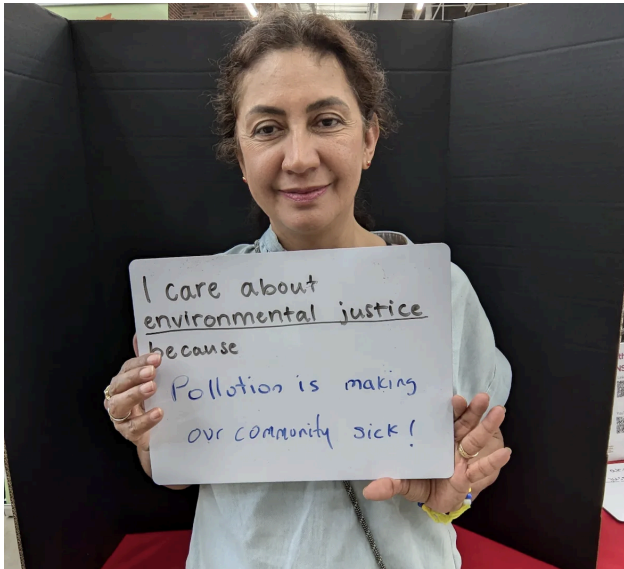 I care about
environmental justice
because
Pollution is making
our community sick!